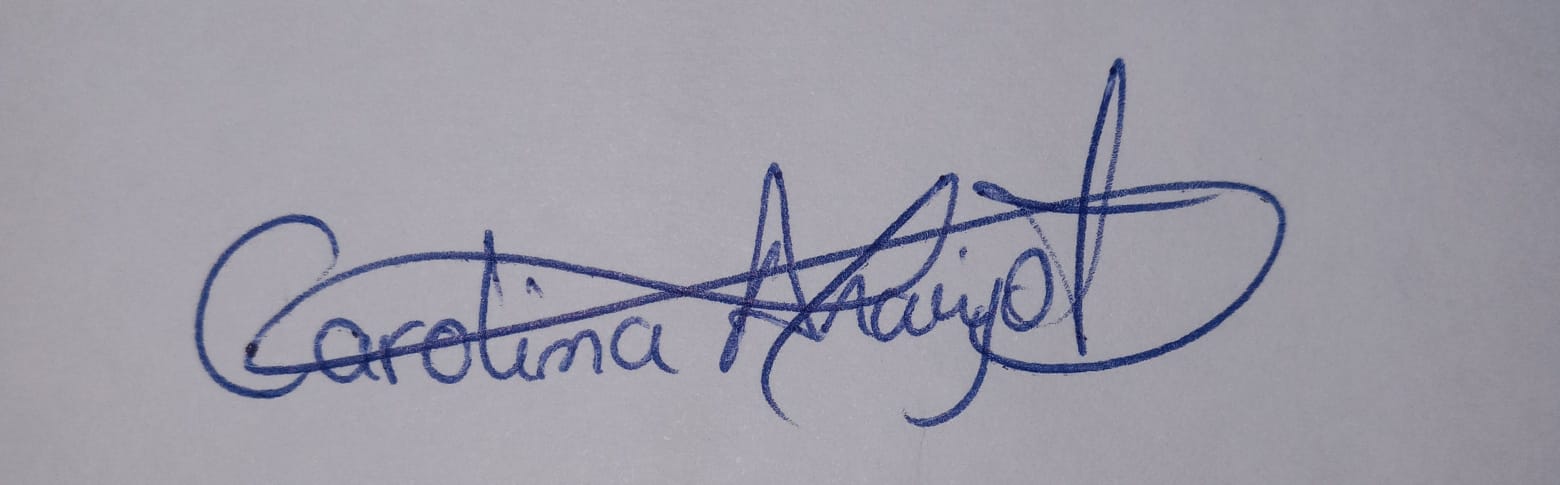 Carolina Araujo